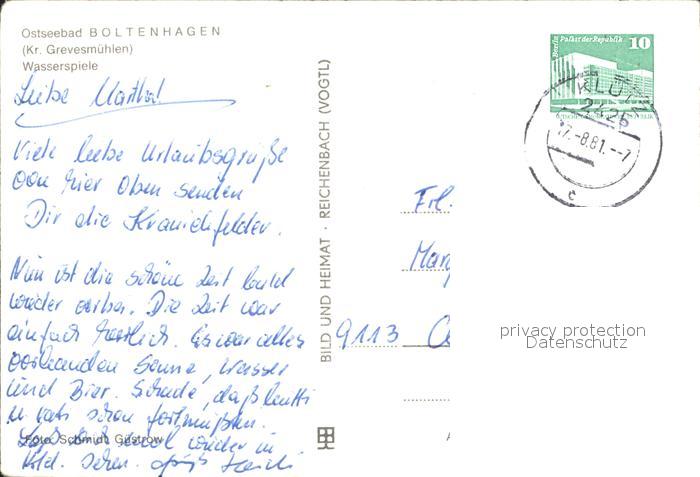 Ostseebad BOLTENHAGEN
(Kr. Grevesmühlen)
Wasserspiele
Liebe Martha!
Viele liebe Urlaubsgrüße
von hier oben senden
Dir die Kranichfelder.
Nun ist die schöne Zeit bald
wieder vorbei. Die Zeit war
einfach herrlich. Es war alles
vorhanden Sonne, Wasser
und Bier. Schade, daß
u schon fortmußten.
wieder in
Kld. sehen.
Foto: Schmidt, Güstrow
BILD UND HEIMAT · REICHENBACH (VOGTL)
Berlin Palast der Republik 10
KLÜTZ
2426
17.-8.81.--7
c
Frl.
9113
privacy protection
Datenschutz